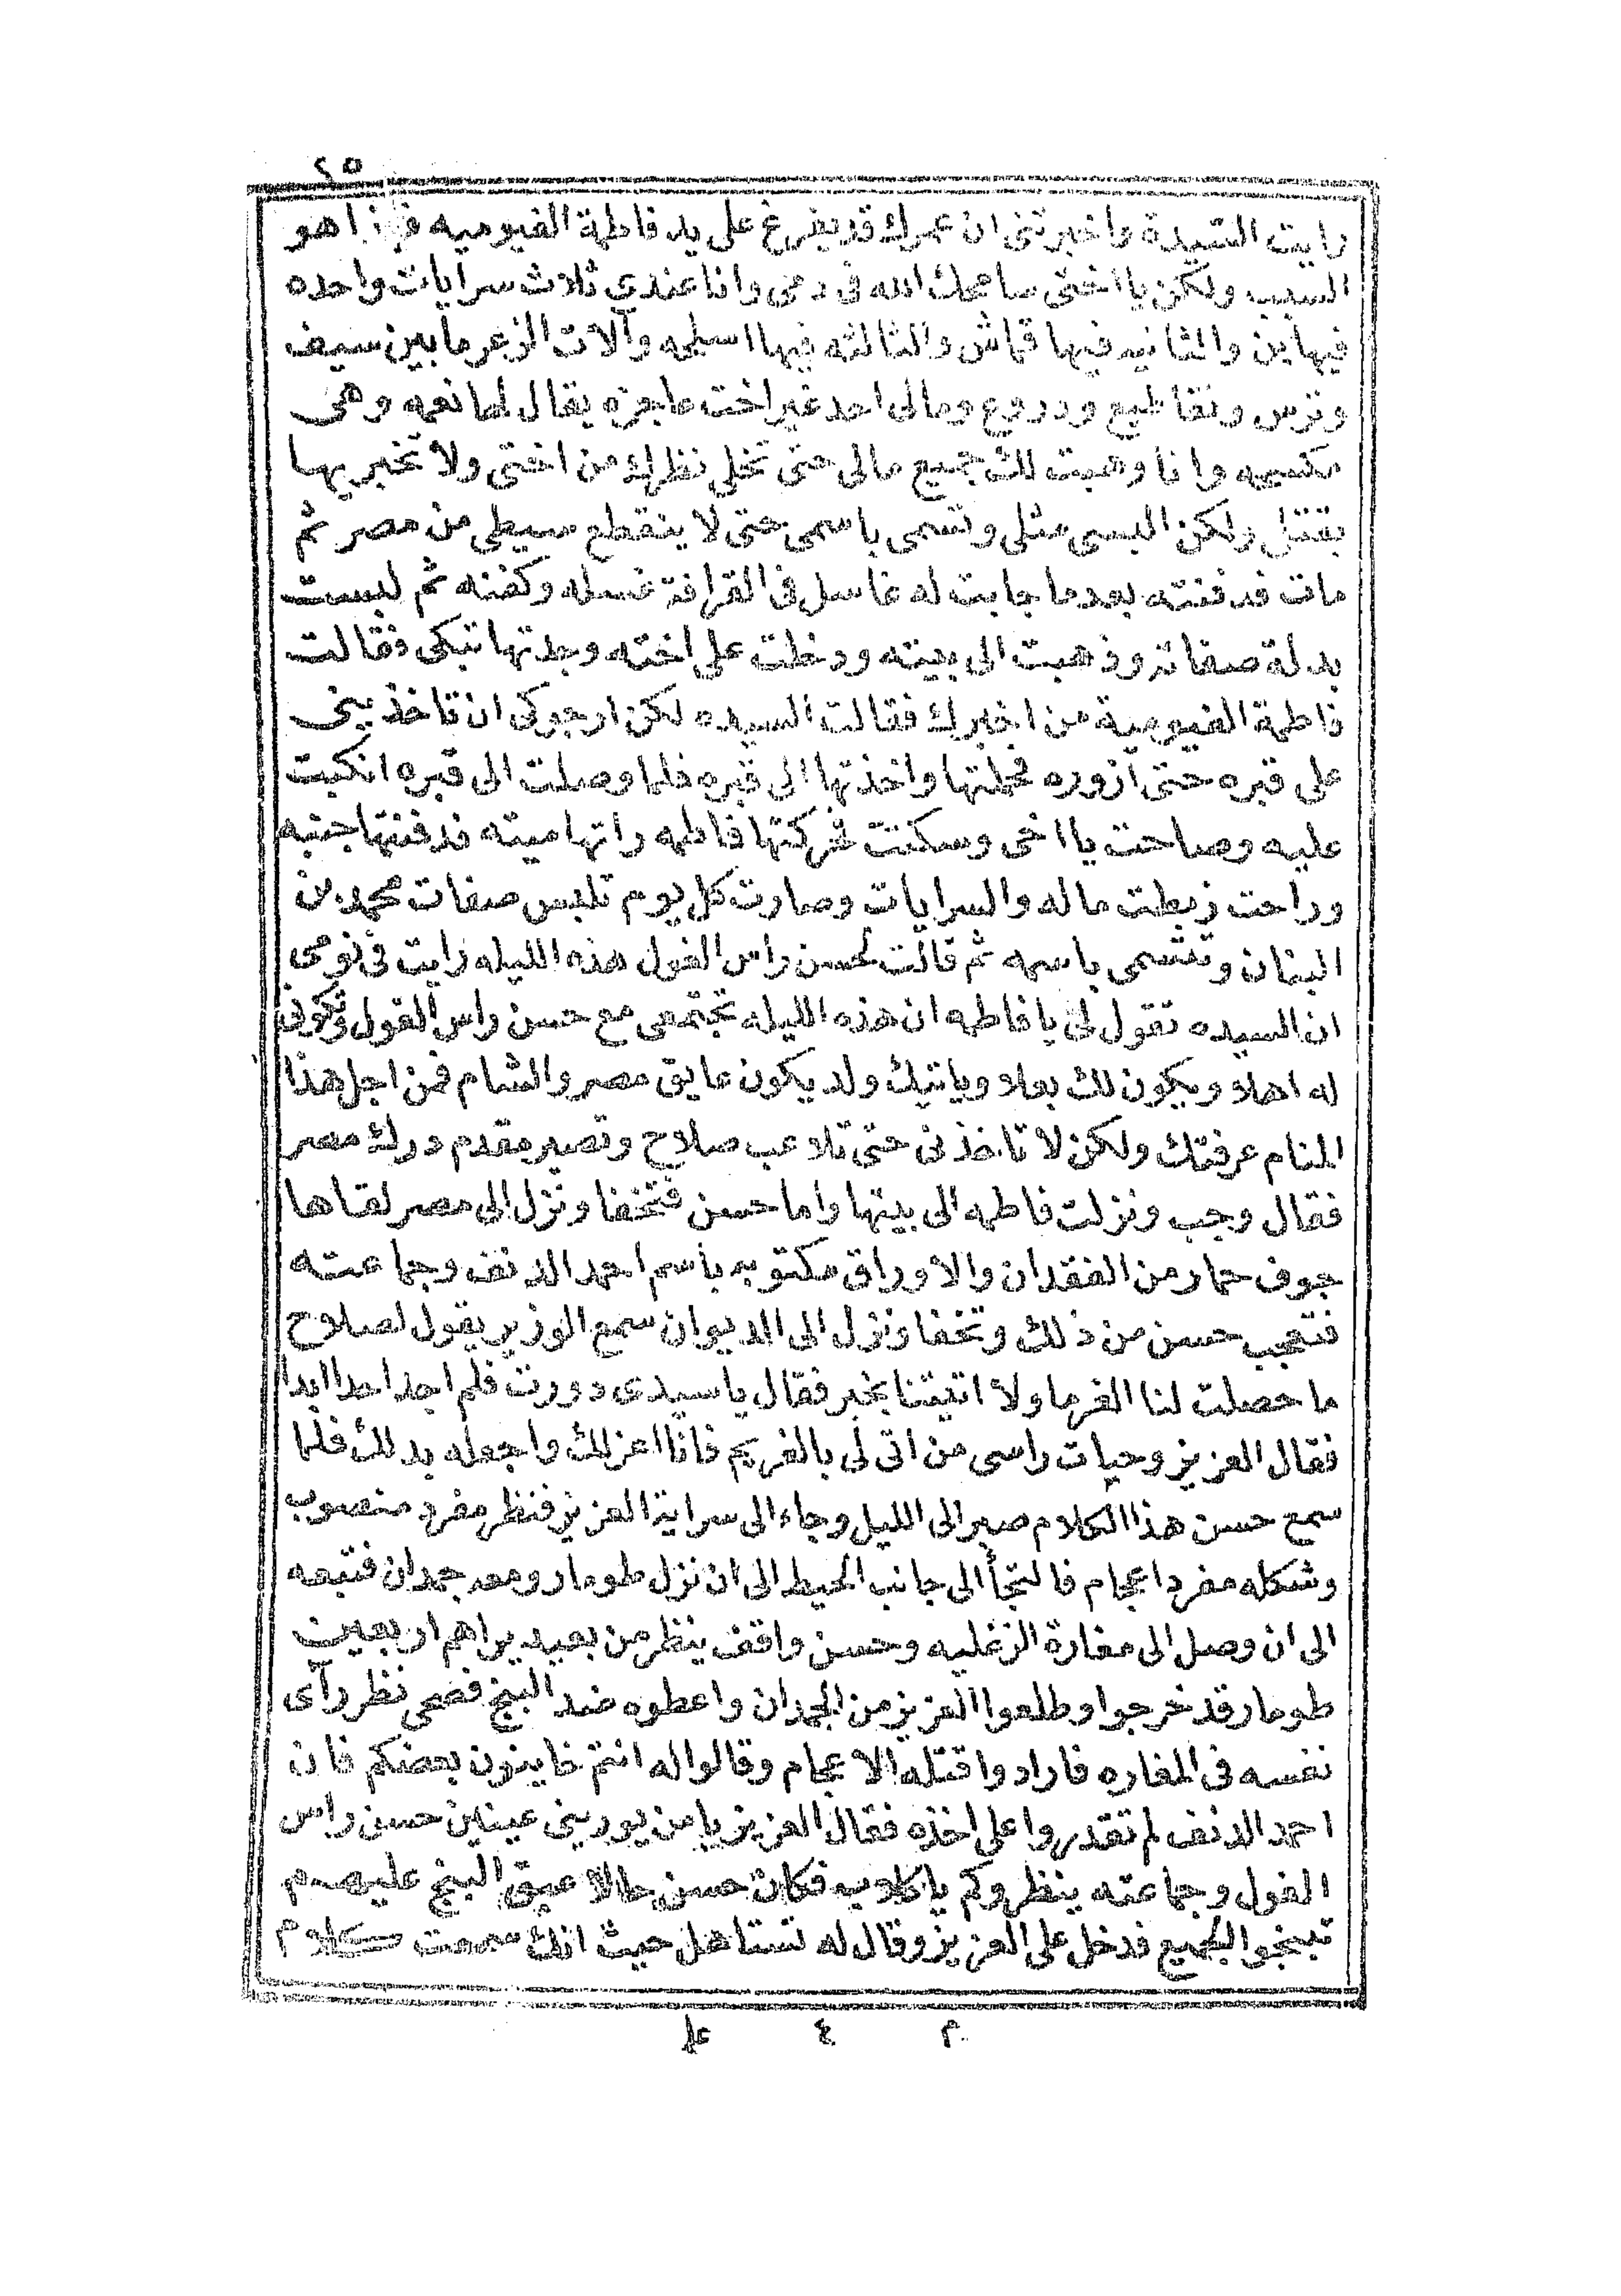 ٢٥
رايت السيدة واخبرتنى ان عمرك قد يفرغ على يد فاطمة الفيوميه فهذا هو
السبب ولكن يا اختى سامحك الله فى دمى وانا عندى ثلاث سرايات واحده
فيها بن والثانيه فيها قماش والثالثه فيها اسلحه وآلات الزعر ما بين سيف
وترس وتقاطيع ودروع ومالى احد غير اخت عاجزه يقال لها نعمه وهى
مكسحه وانا وهبت لك جميع مالى حتى تخلى نظرك من اختى ولا تخبريها
بقتلى ولكن البسى مثلى وتسمى باسمى حتى لا ينقطع سيطى من مصر ثم
مات فدفنته بعد ما جابت له غاسل فى القرافه غسله وكفنه ثم لبست
بدلة صفاته وذهبت الى بيته ودخلت على اخته وجدتها تبكى فقالت
فاطمة الفيومية من اخبرك فقالت السيده لكن ارجوكى ان تاخذينى
على قبره حتى ازوره فحملتها واخذتها الى قبره فلما وصلت الى قبره انكبت
عليه وصاحت يا اخى وسكتت فحركتها فاطمه راتها ميته فدفنتها جنبه
وراحت ربطت ماله والسرايات وصارت كل يوم تلبس صفات محمد بن
البنان وتتسمى باسمه ثم قالت لحسن راس الغول هذه الليله رايت فى نومى
ان السيده تقول لى يا فاطمه ان هذه الليله تجتمعى مع حسن راس الغول وتكونى
له اهلا ويكون لك بعلا وياتيك ولد يكون عايق مصر والشام فمن اجل هذا
المنام عرفتك ولكن لا تاخذنى حتى تلاعب صلاح وتصير مقدم درك مصر
فقال وجب ونزلت فاطمه الى بيتها واما حسن فتخفا ونزل الى مصر لقاها
جوف حمار من الفقدان والاوراق مكتوبه باسم احمد الدنف وجماعته
فتعجب حسن من ذلك وتخفا ونزل الى الديوان سمع الوزير يقول لصلاح
ما حصلت لنا الغرما ولا اتيتنا بخبر فقال يا سيدى دورت فلم اجد احدا ابدا
فقال العزيز وحيات راسى من اتى لى بالغريم فانا اعزلك واجعله بدلك فلما
سمع حسن هذا الكلام صبر الى الليل وجاء الى سراية العزيز فنظر مفرد منصوب
وشكله مفرد اعجام فالتجأ الى جانب الحيط الى ان نزل طومار ومعه جمدان فتبعه
الى ان وصل الى مغارة الزغليه وحسن واقف ينظر من بعيد يراهم اربعين
طومار قد خرجوا وطلعوا العزيز من الجمدان واعطوه ضد البنج فصحى نظر رآى
نفسه فى المغاره فارادوا قتله الاعجام وقالوا له انتم خاينون بعضكم فان
احمد الدنف لم تقدروا على اخذه فقال العزيز يا من يورينى عينين حسن راس
الغول وجماعته ينظروكم يا كلاب فكان حسن حالا عبق البنج عليهم
تبنجوا الجميع فدخل على العزيز وقال له تستاهل حيث انك سمعت كلام
م ٤ على